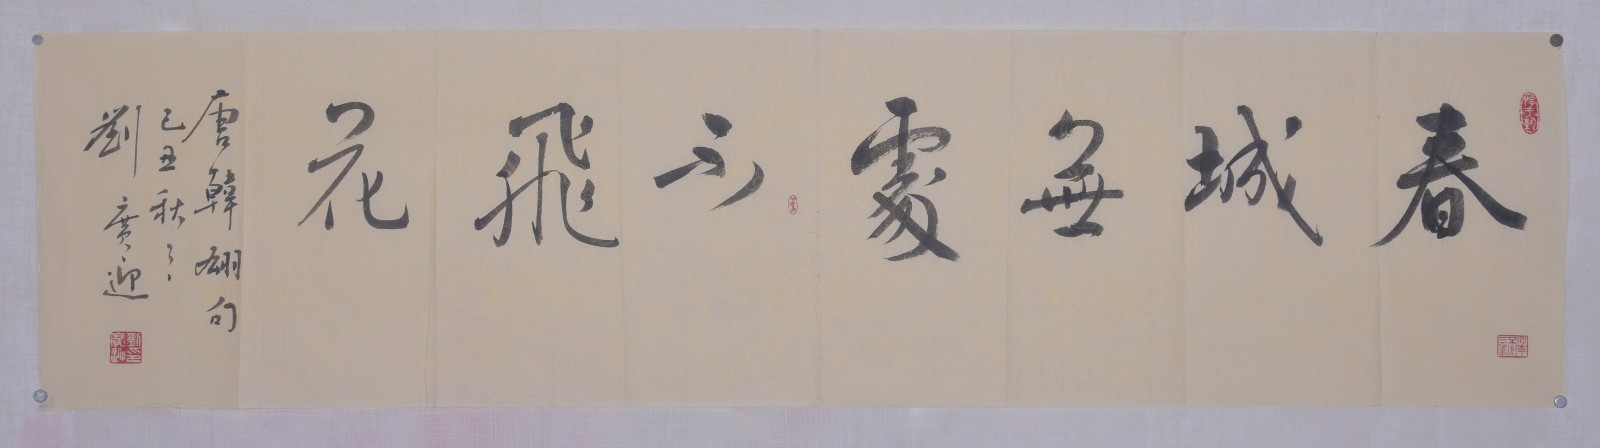 春城無處不飛花
唐韓翃句
己丑秋月
劉廣迎